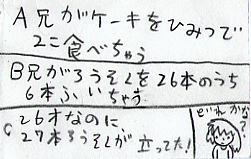 A兄がケーキをひみつで
2こ食べちゃう
B兄がろうそくを26本のうち
6本ふいちゃう
C 26才なのに
27本ろうそくが立ってた!
どれかな?